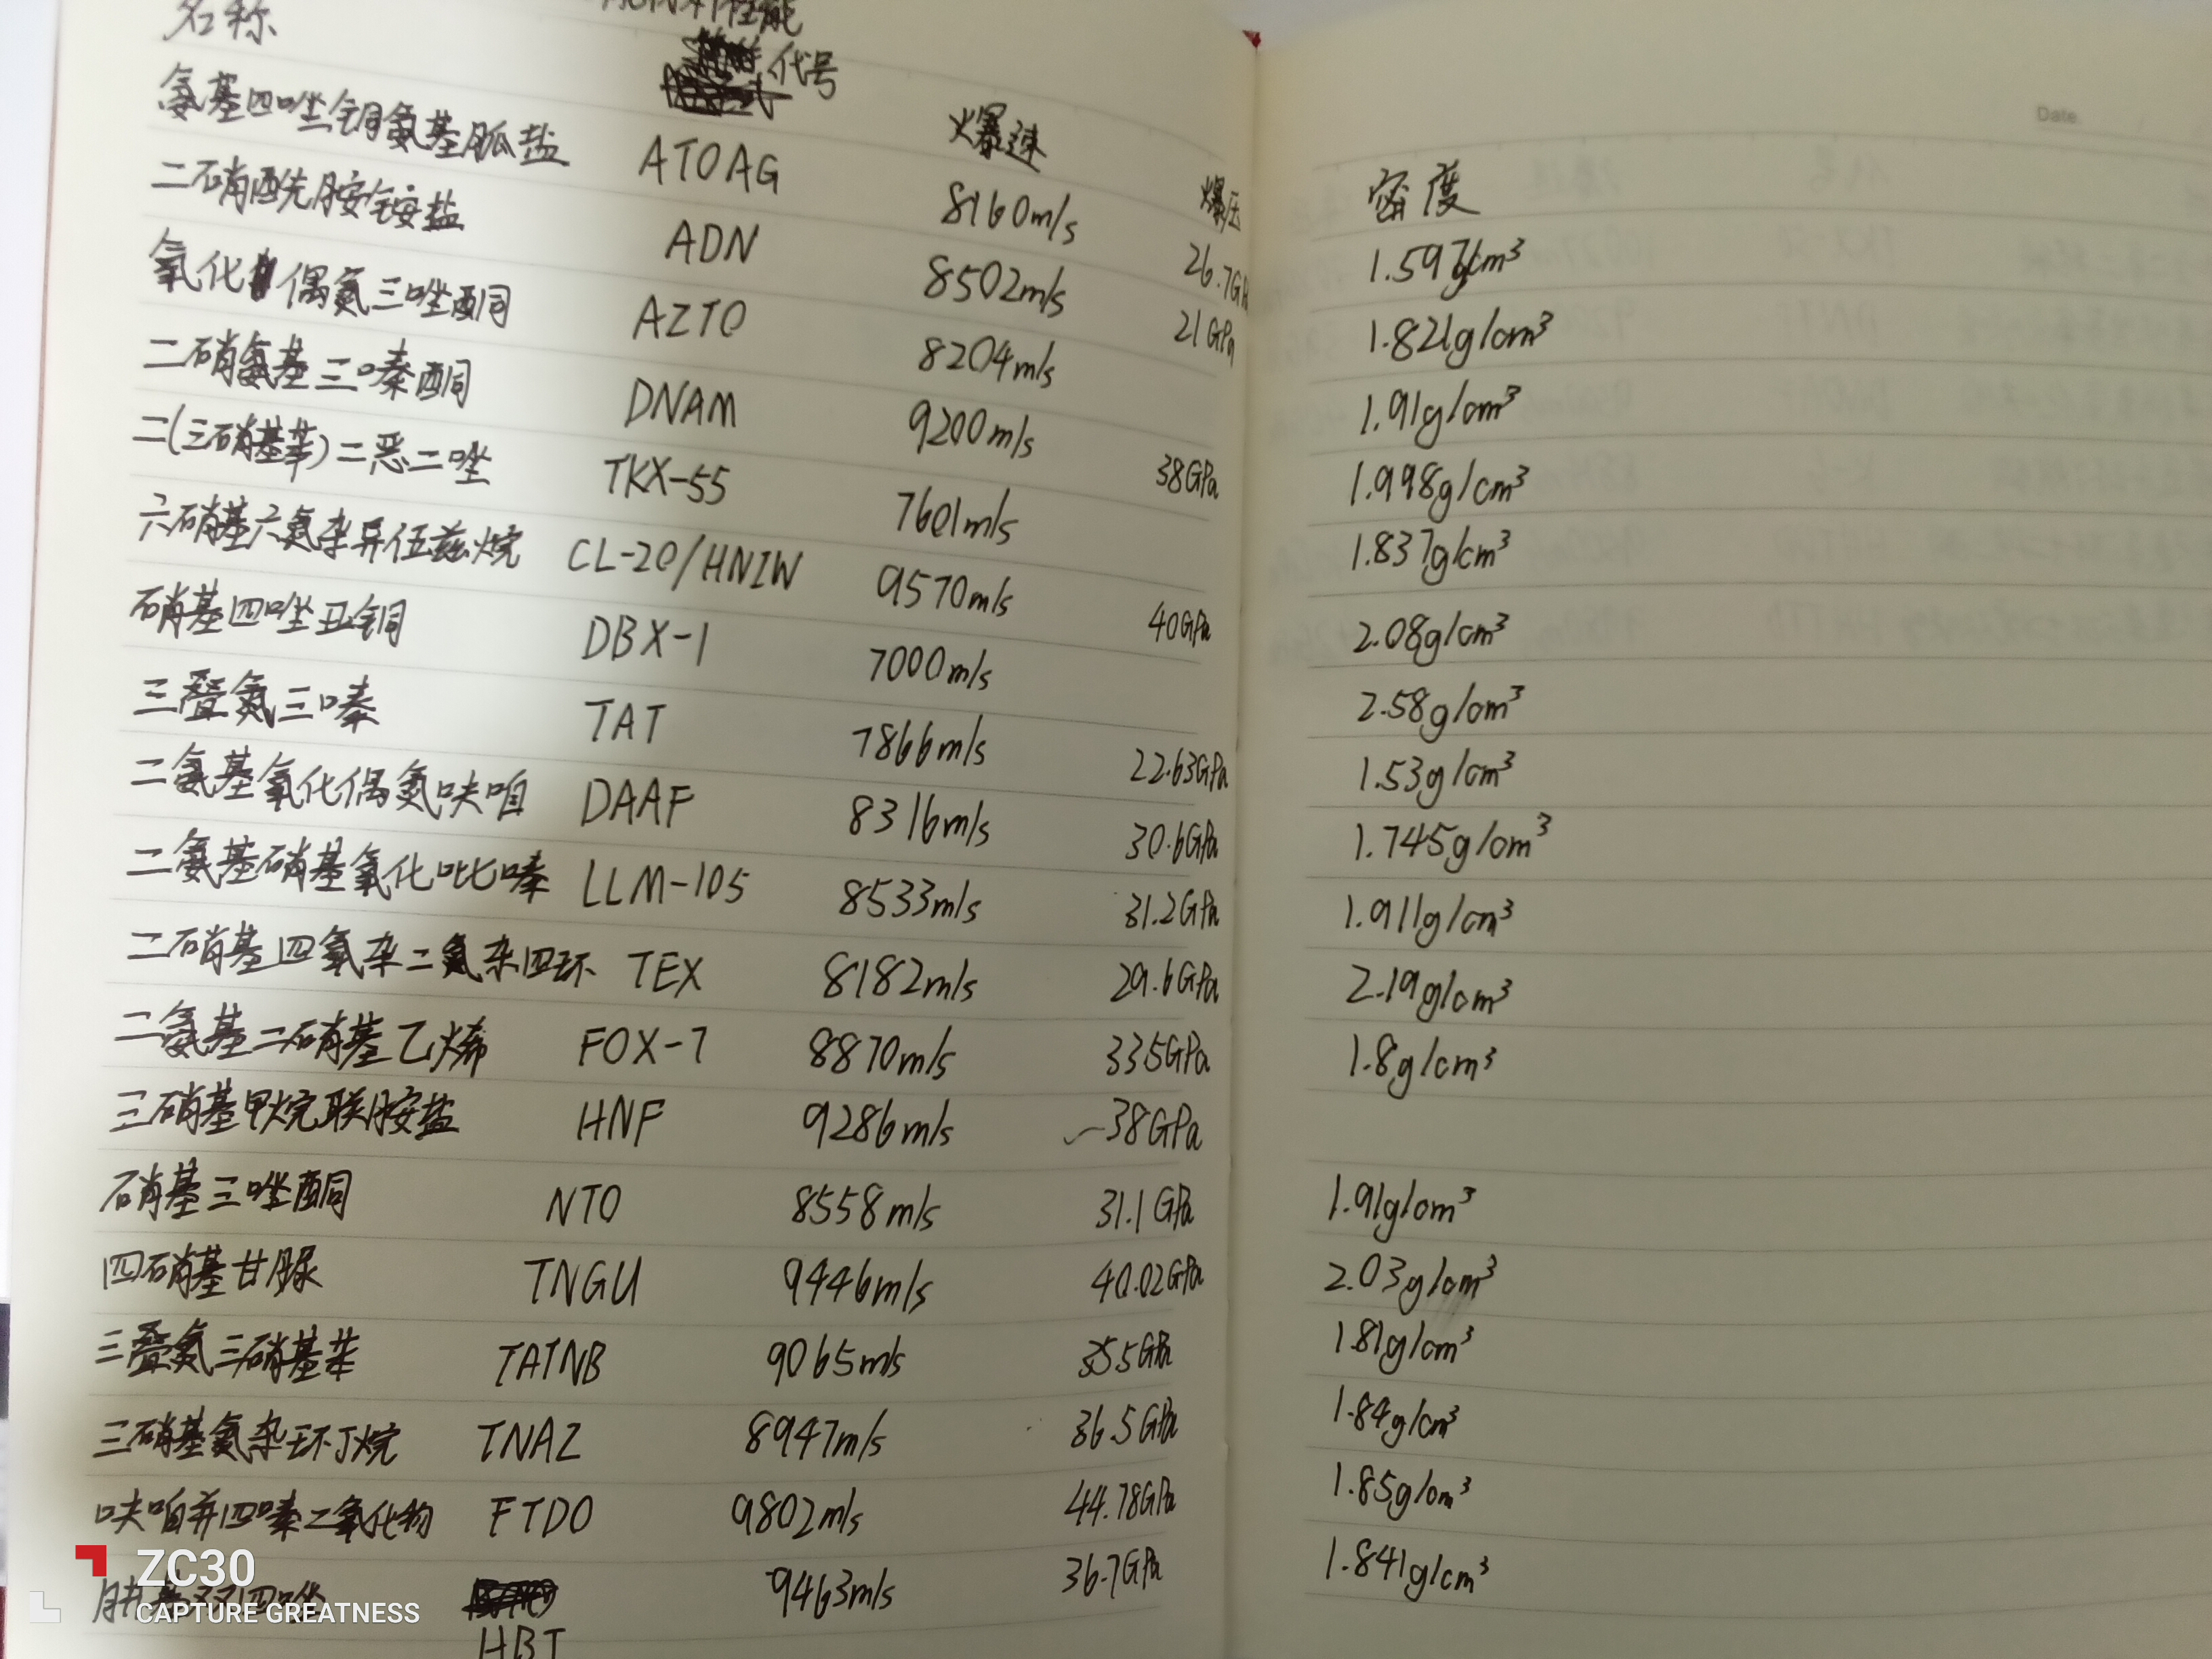 名称 代号 爆速 爆压 密度
Date
氨基四唑铜氨基胍盐 ATOAG 8160m/s 26.7G 1.597g/cm³
二硝酰胺铵盐 ADN 8502m/s 21GPa 1.821g/cm³
氧化偶氮三唑酮 AZTO 8204m/s 1.91g/cm³
二硝氨基三嗪酮 DNAM 9200m/s 38GPa 1.998g/cm³
二(三硝基苯)二恶二唑 TKX-55 7601m/s 1.837g/cm³
六硝基六氮杂异伍兹烷 CL-20/HNIW 9570m/s 40GPa 2.08g/cm³
硝基四唑亚铜 DBX-1 7000m/s 2.58g/cm³
三叠氮三嗪 TAT 7866m/s 22.63GPa 1.53g/cm³
二氨基氧化偶氮呋咱 DAAF 8316m/s 30.6GPa 1.745g/cm³
二氨基硝基氧化吡嗪 LLM-105 8533m/s 31.2GPa 1.911g/cm³
二硝基四氧杂二氮杂四环 TEX 8182m/s 29.6GPa 2.19g/cm³
二氨基二硝基乙烯 FOX-7 8870m/s 335GPa 1.8g/cm³
三硝基甲烷联胺盐 HNF 9286m/s 38GPa
硝基三唑酮 NTO 8558m/s 31.1GPa 1.91g/cm³
四硝基甘脲 TNGU 9446m/s 40.02GPa 2.03g/cm³
三叠氮三硝基苯 TATNB 9065m/s 1.81g/cm³
三硝基氮杂环丁烷 TNAZ 8947m/s 36.5GPa 1.84g/cm³
呋咱并四嗪二氧化物 FTDO 9802m/s 44.78GPa 1.85g/cm³
HBT 9463m/s 36.7GPa 1.841g/cm³
ZC30
CAPTURE GREATNESS